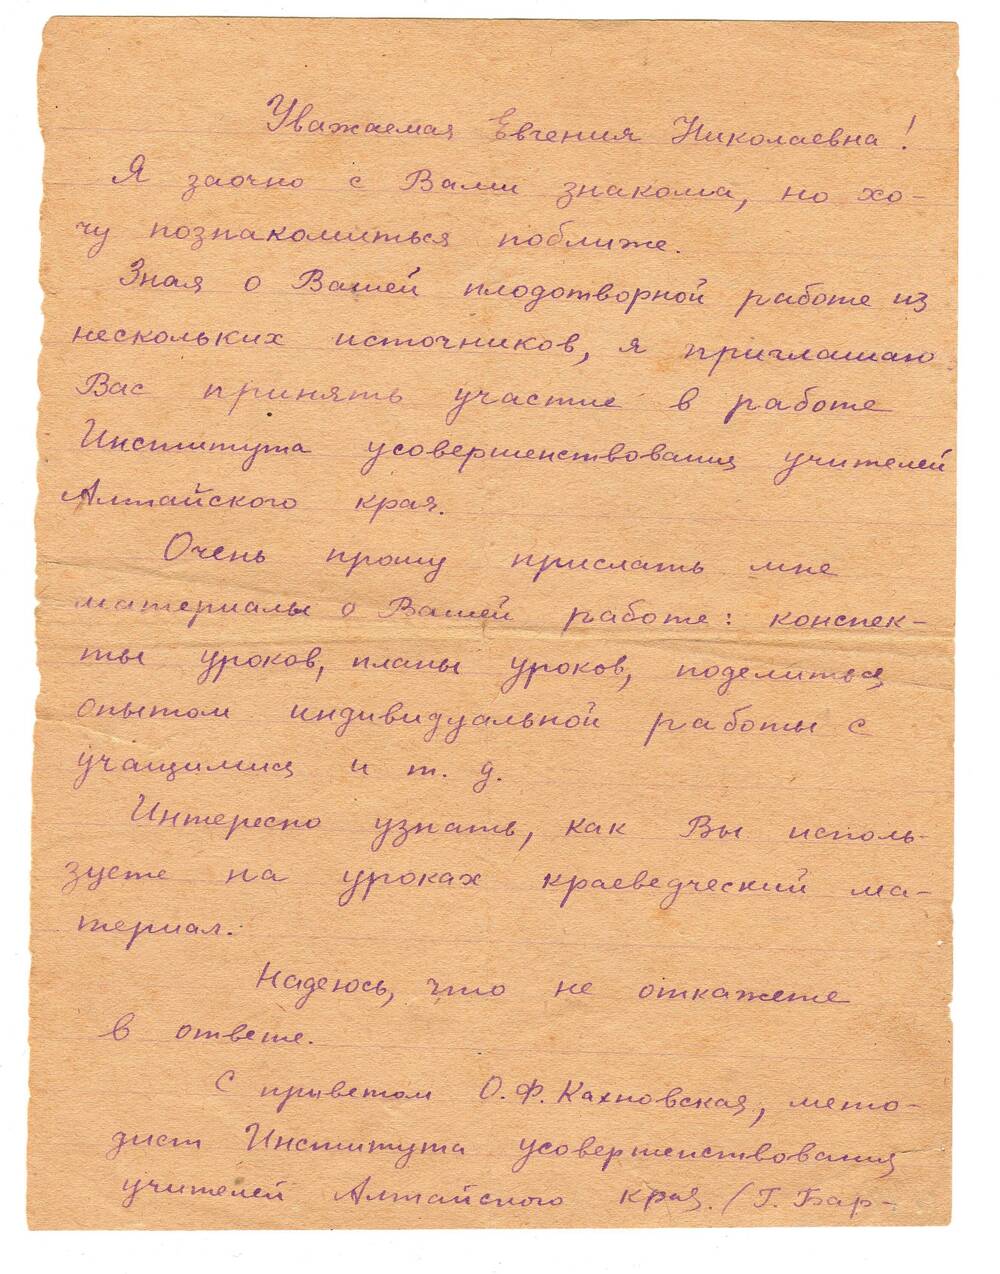 Уважаемая Евгения Николаевна!
Я заочно с Вами знакома, но хо-
чу познакомиться поближе.
Зная о Вашей плодотворной работе из
нескольких источников, я приглашаю
Вас принять участие в работе
Института усовершенствования учителей
Алтайского края.
Очень прошу прислать мне
материалы о Вашей работе: конспек-
ты уроков, планы уроков, поделиться
опытом индивидуальной работы с
учащимися и т. д.
Интересно узнать, как Вы исполь-
зуете на уроках краеведческий ма-
териал.
Надеюсь, что не откажете
в ответе.
С приветом О.Ф. Кахновская, мето-
дист Института усовершенствования
учителей Алтайского края. /Г. Бар-